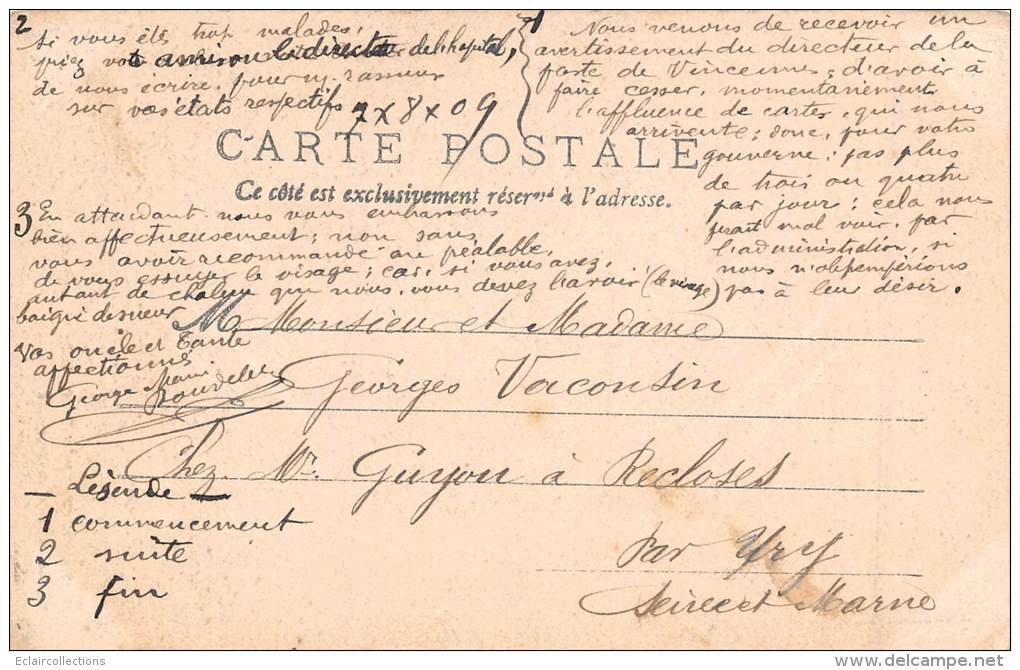 1
Nous venons de recevoir un
avertissement du directeur de la
poste de Vincennes, d'avoir à
faire cesser, momentanément
l'affluence de cartes, qui nous
arrivent; donc, pour votre
gouverne; pas plus
de trois ou quatre
par jour; cela nous
ferait mal voir, par
l'administration, si
nous n'obtempérions
pas à leur désir.
2
Si vous êtes trop malades,
priez le directeur de l'hopital,
de nous écrire, pour n. rassurer
sur vos états respectifs
7 x 8 x 09
CARTE POSTALE
Ce côté est exclusivement réservé à l'adresse.
3 En attendant nous vous embrassons
bien affectueusement; non sans
vous avoir recommandé au préalable,
de vous essuyer le visage; car, si vous avez,
autant de chaleur que nous, vous devez l'avoir (le visage)
baigné de sueur
Vos oncle et Tante
affectionnés
George Marie
M Monsieur et Madame
Georges Vaconsin
Chez Mr. Guyon à Recloses
Par Ury
Seine et Marne
— Légende —
1 commencement
2 suite
3 fin
Eclaircollections
delcampe.net